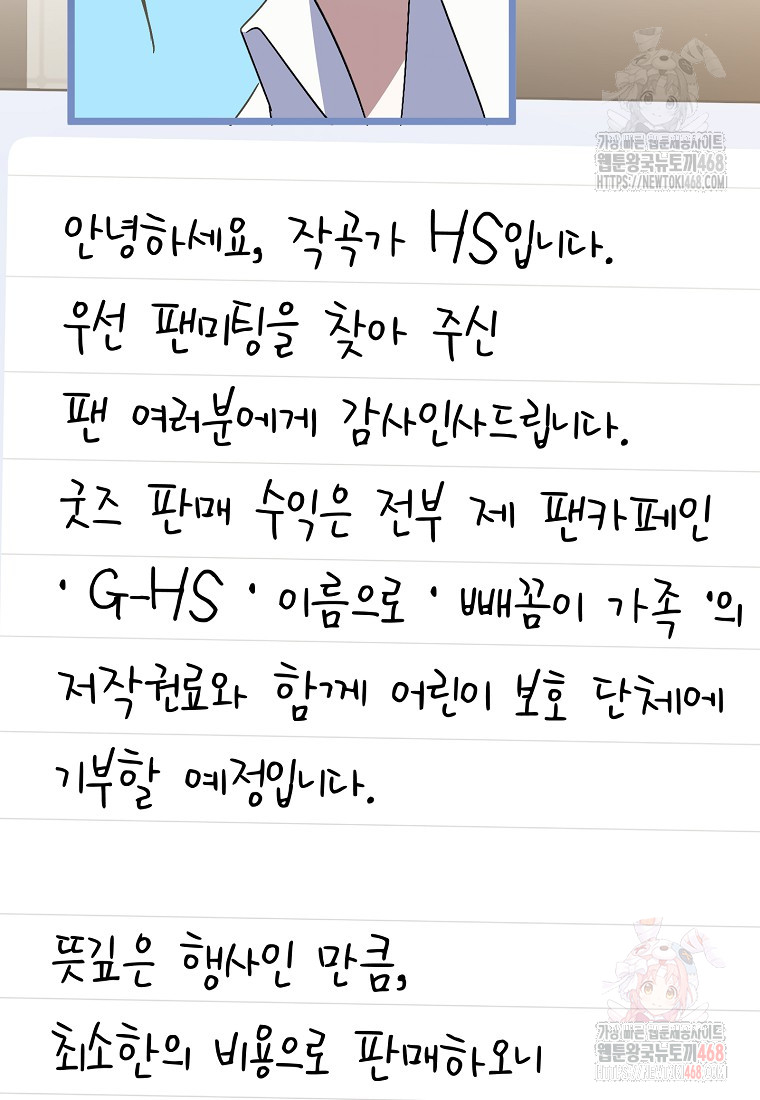 가장 빠른 웹툰제공사이트
웹툰왕국뉴토끼468
HTTPS://NEWTOKI468.COM
안녕하세요, 작곡가 HS입니다.
우선 팬미팅을 찾아 주신
팬 여러분에게 감사인사드립니다.
굿즈 판매 수익은 전부 제 팬카페인
'G-HS' 이름으로 '빼꼼이 가족'의
저작권료와 함께 어린이 보호 단체에
기부할 예정입니다.
뜻깊은 행사인 만큼,
최소한의 비용으로 판매하오니
가장 빠른 웹툰제공사이트
웹툰왕국뉴토끼468
HTTPS://NEWTOKI468.COM